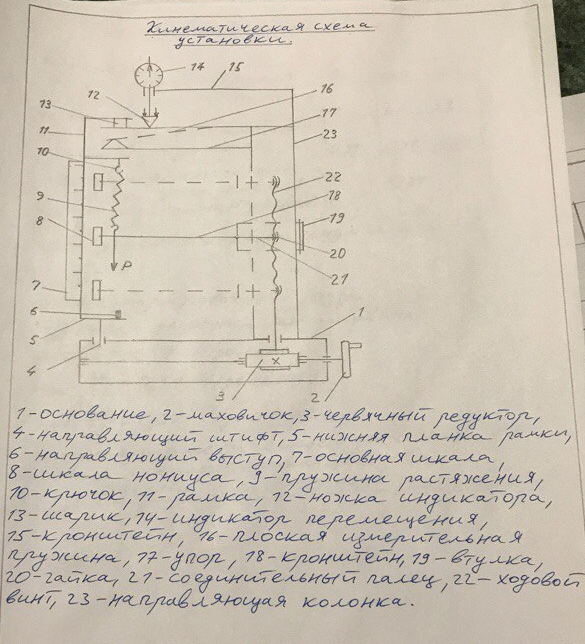 Кинематическая схема
установки.
14
15
12
16
13
17
11
23
10
22
9
18
19
8
20
P
21
7
6
1
5
4
3
2
1-основание, 2-маховичок, 3-червячный редуктор,
4-направляющий штифт, 5-нижняя планка рамки,
6-направляющий выступ, 7-основная шкала,
8-шкала нониуса, 9-пружина растяжения,
10-крючок, 11-рамка, 12-ножка индикатора,
13-шарик, 14-индикатор перемещения,
15-кронштейн, 16-плоская измерительная
пружина, 17-упор, 18-кронштейн, 19-втулка,
20-гайка, 21-соединительный палец, 22-ходовой
винт, 23-направляющая колонка.